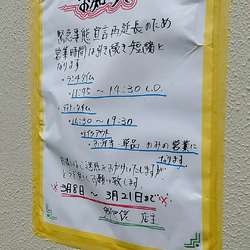 お知らせ
緊急事態宣言再延長のため
営業時間は引き続き短縮と
なります
・ランチタイム
～14:30 L.O.
・ディナータイム
16:30 ～ 19:30
テイクアウト
お弁当・単品 のみの営業に
なります
ご迷惑をおかけいたしますが
お願い致します。
3月8日 ～ 3月21日まで
店主